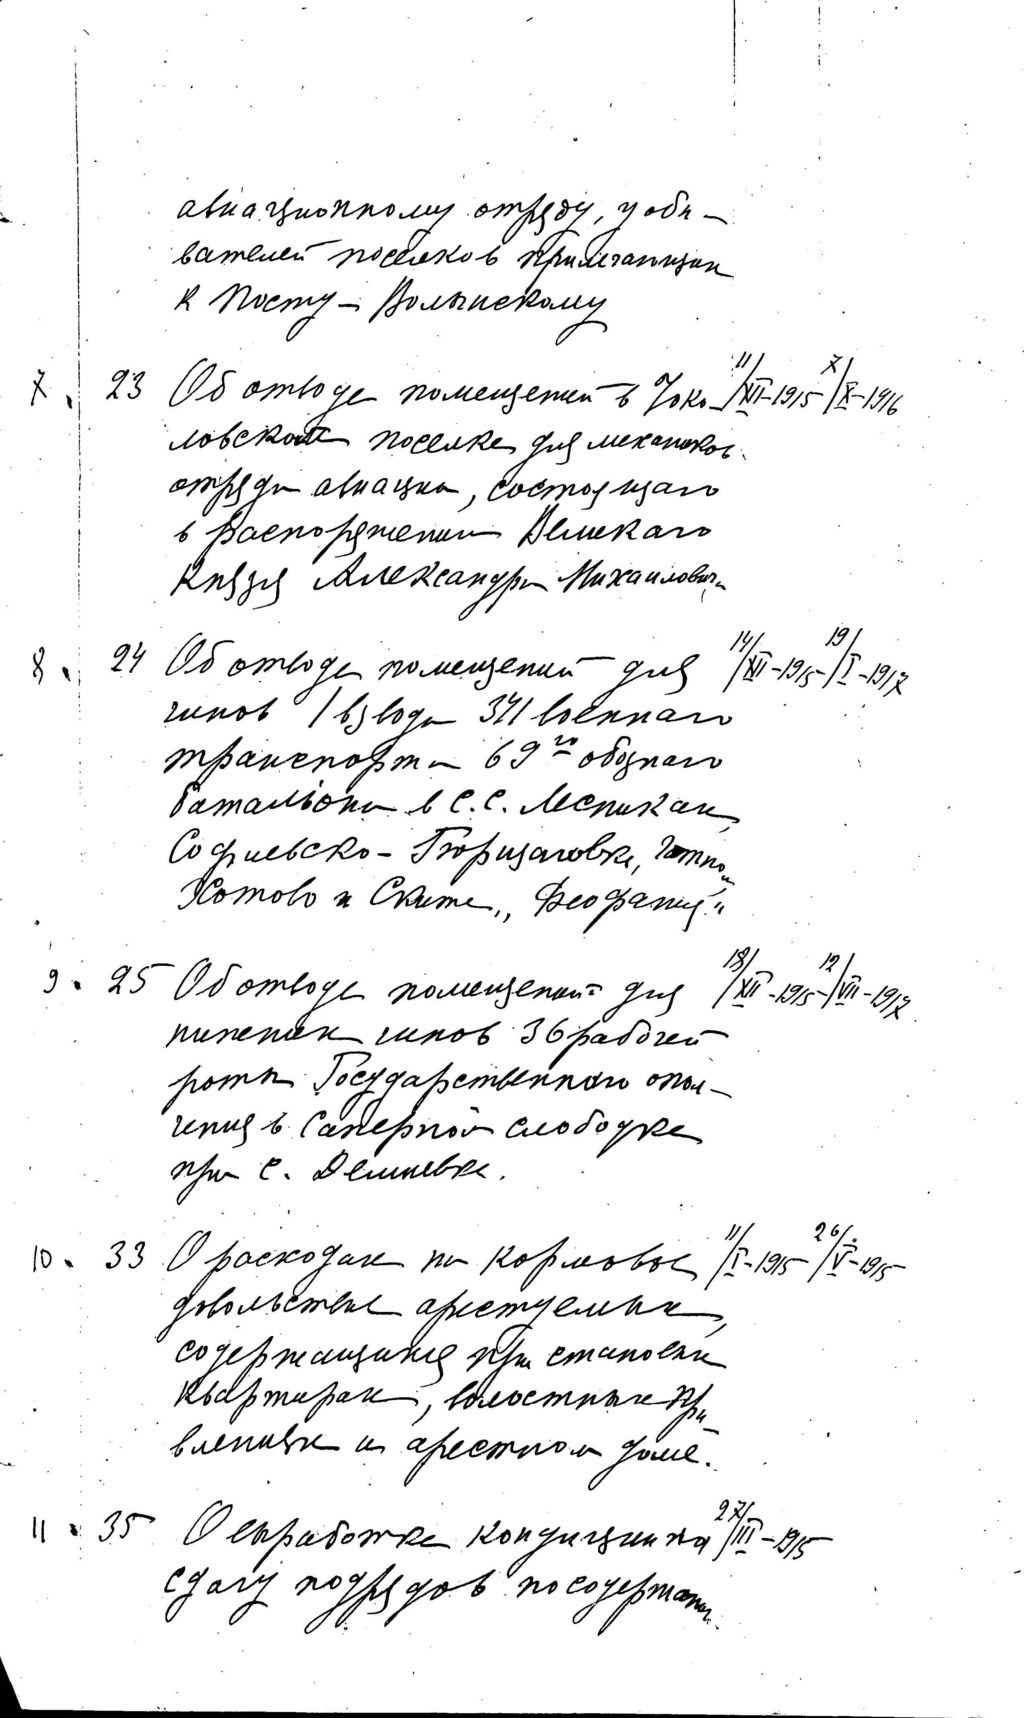 авиационному отряду, у оби-
вателей поселков прилегающих
к Посту-Волынскому
7. 23 Об отводе помещений в Чоко- 11/XII-1915 7/X-1916
ловском поселке для механиков
отряда авиации, состоящаго
в распоряжении Великаго
Князя Александра Михайловича
8. 24 Об отводе помещений для 14/XII-1915- 19/I-1917
чинов 1 взвода 341 военнаго
транспорта 69го обознаго
батальона в с.с. Лесниках,
Софиевско-Борщаговке, Гатном,
Хотово и Ските „Феофания"
9. 25 Об отводе помещений для 18/XII-1915- 12/VII-1917
нижних чинов 36 рабочей
роты Государственного опол-
чения в Саперной слободке
при с. Демиевке.
10. 33 О расходах на кормовое 11/I-1915 26/V-1915
довольствие арестуемых,
содержащихся при становых
квартирах, волостных пра-
влениях и арестном доме.
11. 35 О выработке кондиции на 27/III-1915
сдачу подрядов по содержанию